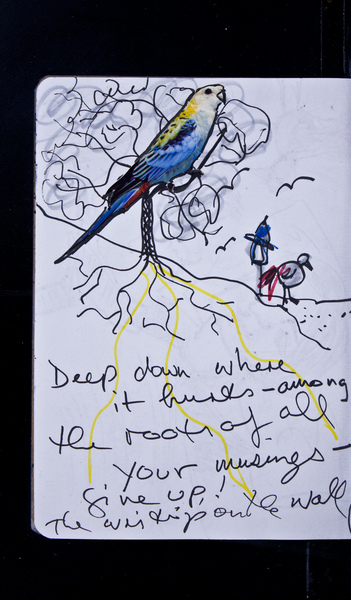 Deep down where
it hurts - among
the roots of all
your musings -
give up!
The writing on the wall